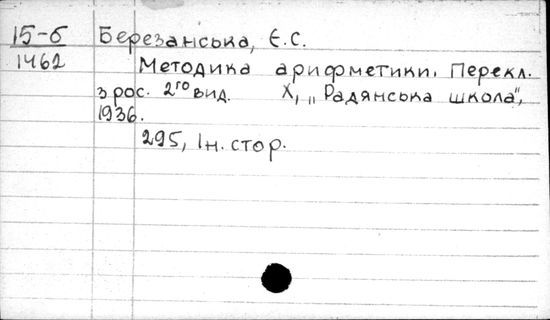 15-б Березанська, Є.С.
1462
Методика арифметики. Перекл.
з рос. 2го вид. Х, „Радянська школа",
1936.
295, Ін. стор.